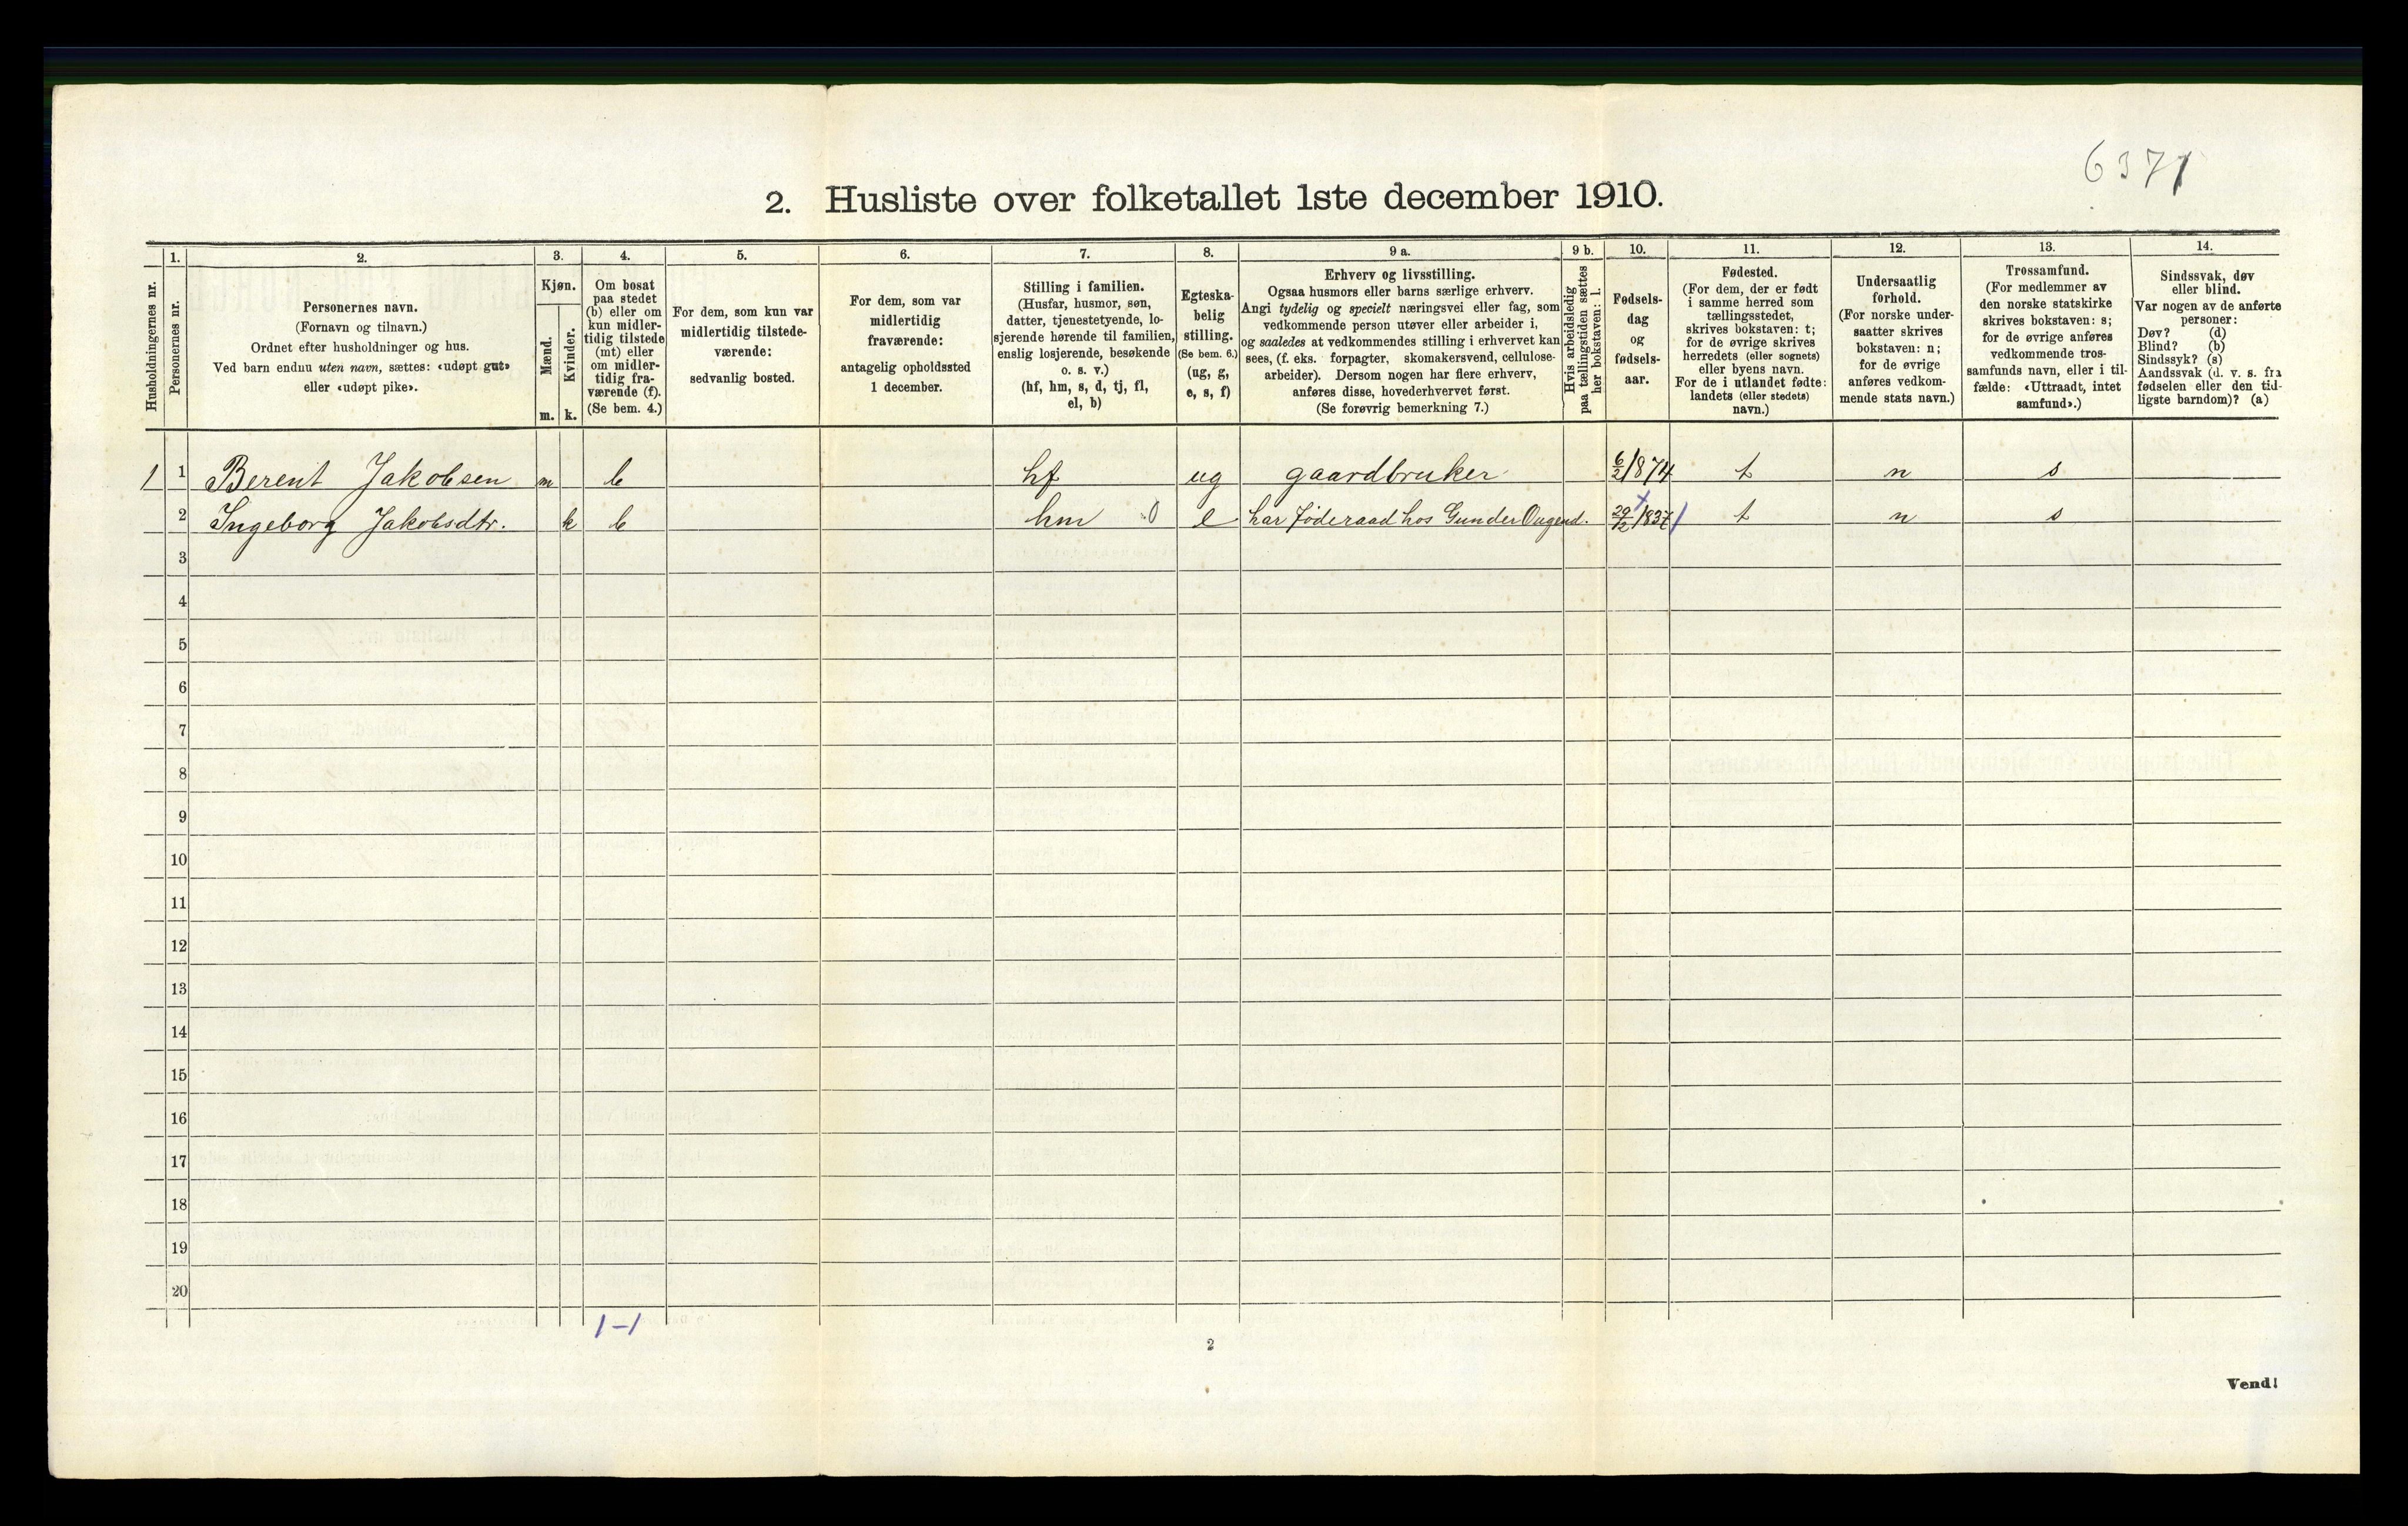 6371
2. Husliste over folketallet 1ste december 1910.
Husholdningernes nr.
1.
Personernes nr.
2.
Personernes navn.
(Fornavn og tilnavn.)
Ordnet efter husholdninger og hus.
Ved barn endnu uten navn, sættes: «udøpt gut»
eller «udøpt pike».
3.
Kjøn.
Mænd.
Kvinder.
m. k.
4.
Om bosat
paa stedet
(b) eller om
kun midler-
tidig tilstede
(mt) eller
om midler-
tidig fra-
værende (f).
(Se bem. 4.)
5.
For dem, som kun var
midlertidig tilstede-
værende:
sedvanlig bosted.
6.
For dem, som var
midlertidig
fraværende:
antagelig opholdssted
1 december.
7.
Stilling i familien.
(Husfar, husmor, søn,
datter, tjenestetyende, lo-
sjerende hørende til familien,
enslig losjerende, besøkende
o. s. v.)
(hf, hm, s, d, tj, fl,
el, b)
8.
Egteska-
belig
stilling.
(Se bem. 6.)
(ug, g,
e, s, f)
9 a.
Erhverv og livsstilling.
Ogsaa husmors eller barns særlige erhverv.
Angi tydelig og specielt næringsvei eller fag, som
vedkommende person utøver eller arbeider i,
og saaledes at vedkommendes stilling i erhvervet kan
sees, (f. eks. forpagter, skomakersvend, cellulose-
arbeider). Dersom nogen har flere erhverv,
anføres disse, hovederhvervet først.
(Se forøvrig bemerkning 7.)
9 b.
Hvis arbeidsledig
paa tællingstiden sættes
her bokstaven: l.
10.
Fødsels-
dag
og
fødsels-
aar.
11.
Fødested.
(For dem, der er født
i samme herred som
tællingsstedet,
skrives bokstaven: t;
for de øvrige skrives
herredets (eller sognets)
eller byens navn.
For de i utlandet fødte:
landets (eller stedets)
navn.)
12.
Undersaatlig
forhold.
(For norske under-
saatter skrives
bokstaven: n;
for de øvrige
anføres vedkom-
mende stats navn.)
13.
Trossamfund.
(For medlemmer av
den norske statskirke
skrives bokstaven: s;
for de øvrige anføres
vedkommende tros-
samfunds navn, eller i til-
fælde: «Uttraadt, intet
samfund».)
14.
Sindssvak, døv
eller blind.
Var nogen av de anførte
personer:
Døv? (d)
Blind? (b)
Sindssyk? (s)
Aandssvak (d. v. s. fra
fødselen eller den tid-
ligste barndom)? (a)
1 1 Berent Jakobsen m b hf ug gaardbruker 6/2 1874 t n s
2 Ingeborg Jakobsdtr. k b hm 0 e har føderaad hos Gunder t n s
3
4
5
6
7
8
9
10
11
12
13
14
15
16
17
18
19
20
1-1
2
Vend!